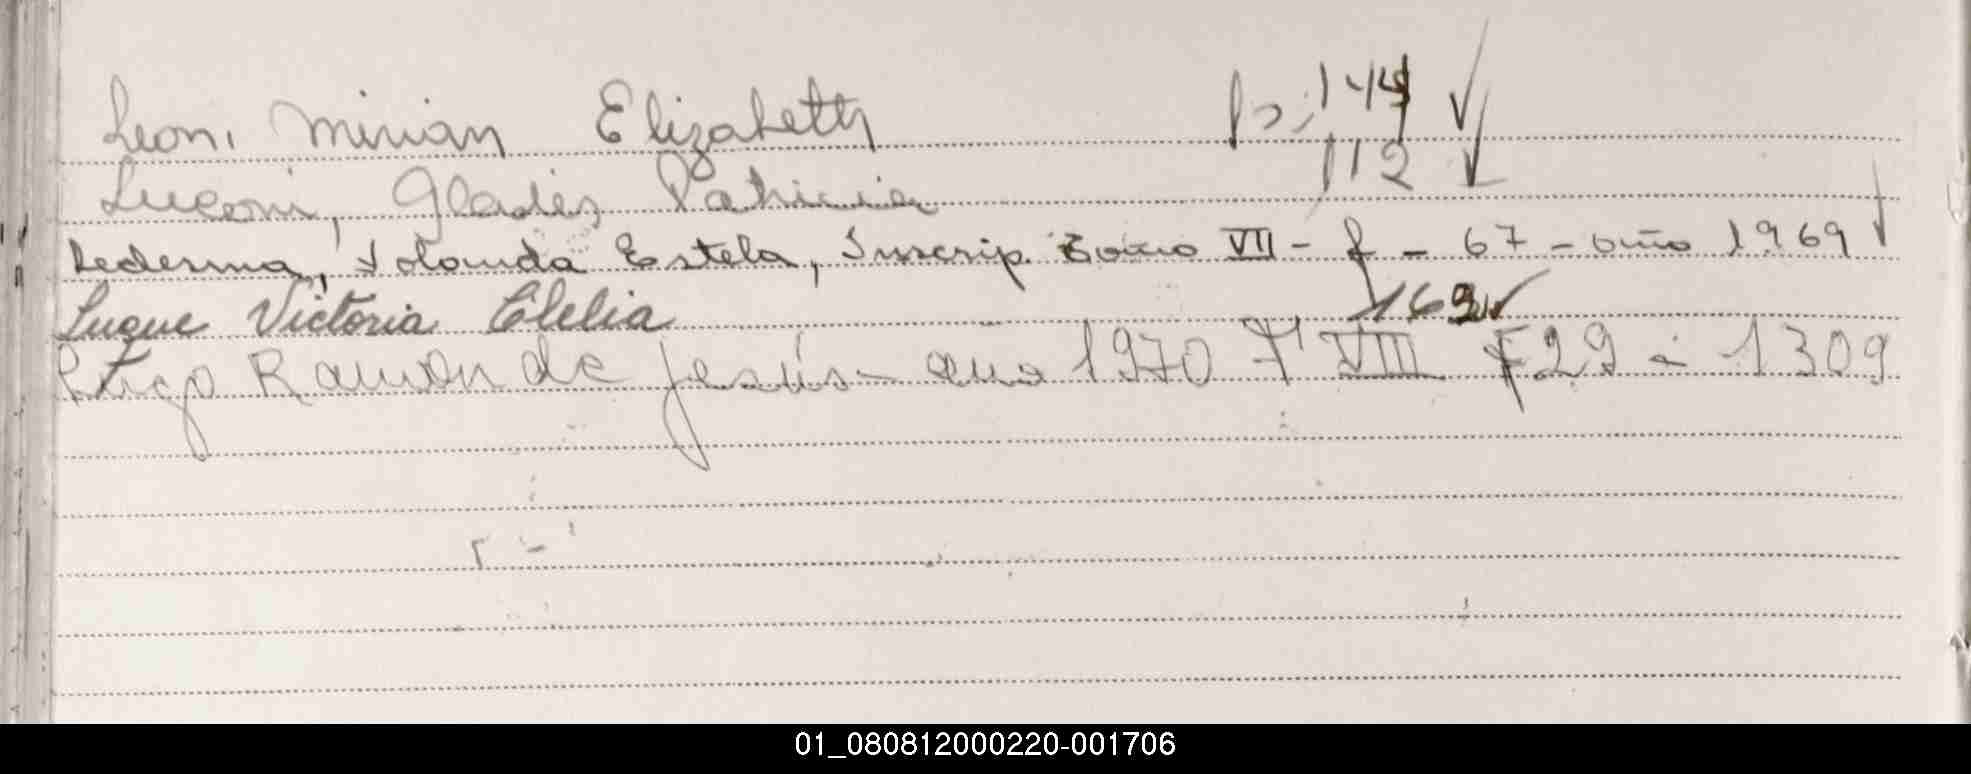 Leoni Mirian Elizabeth fs: 144
Luconi, Gladis Patricia 112
Ledesma, Yolanda Estela, Inscrip. Tomo VII - f - 67 - año 1969
Luque Victoria Clelia 169
Lugo Ramon de Jesús - año 1970 Tº VIII F 29 - 1309
01_080812000220-001706